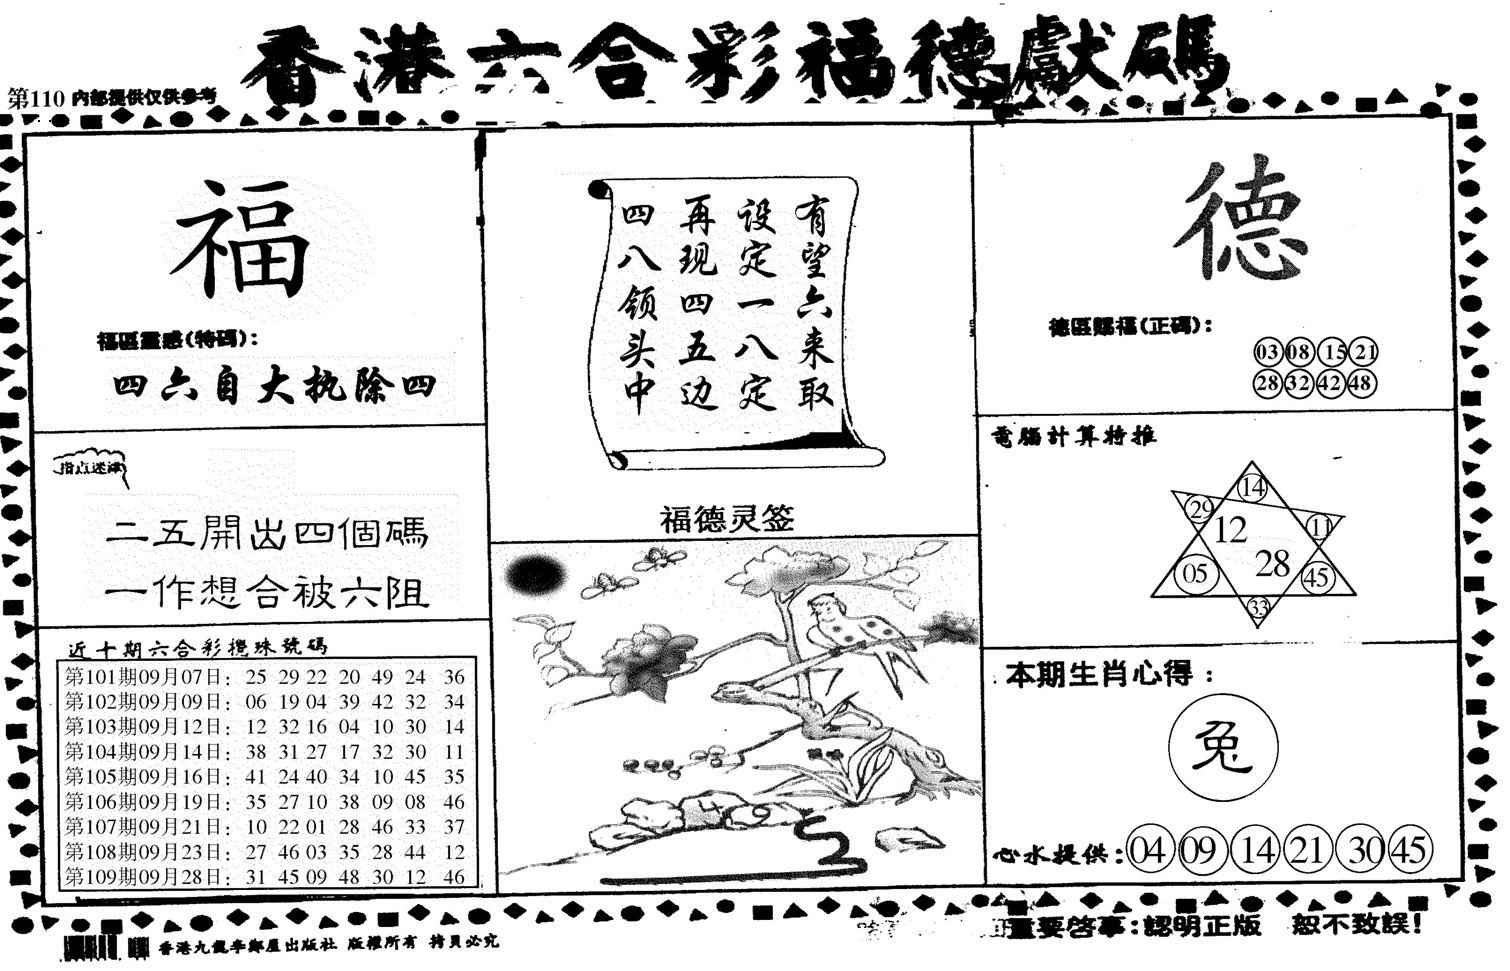 香港六合彩福德獻碼
第110 内部提供仅供参考
福
福區靈感(特碼):
四六自大执除四
指点迷津
二五開出四個碼
一作想合被六阻
近十期六合彩攪珠號碼
第101期09月07日: 25 29 22 20 49 24 36
第102期09月09日: 06 19 04 39 42 32 34
第103期09月12日: 12 32 16 04 10 30 14
第104期09月14日: 38 31 27 17 32 30 11
第105期09月16日: 41 24 40 34 10 45 35
第106期09月19日: 35 27 10 38 09 08 46
第107期09月21日: 10 22 01 28 46 33 37
第108期09月23日: 27 46 03 35 28 44 12
第109期09月28日: 31 45 09 48 30 12 46
有望六来取
设定一八定
再现四五边
四八领头中
福德灵签
4 9
德
德區賜福(正碼):
03 08 15 21
28 32 42 48
電腦計算特推
14
29 11
12
28
05 45
33
本期生肖心得:
兔
心水提供: 04 09 14 21 30 45
香港九龍李鄭屋出版社 版權所有 拷貝必究
重要啓事:認明正版 恕不致誤!